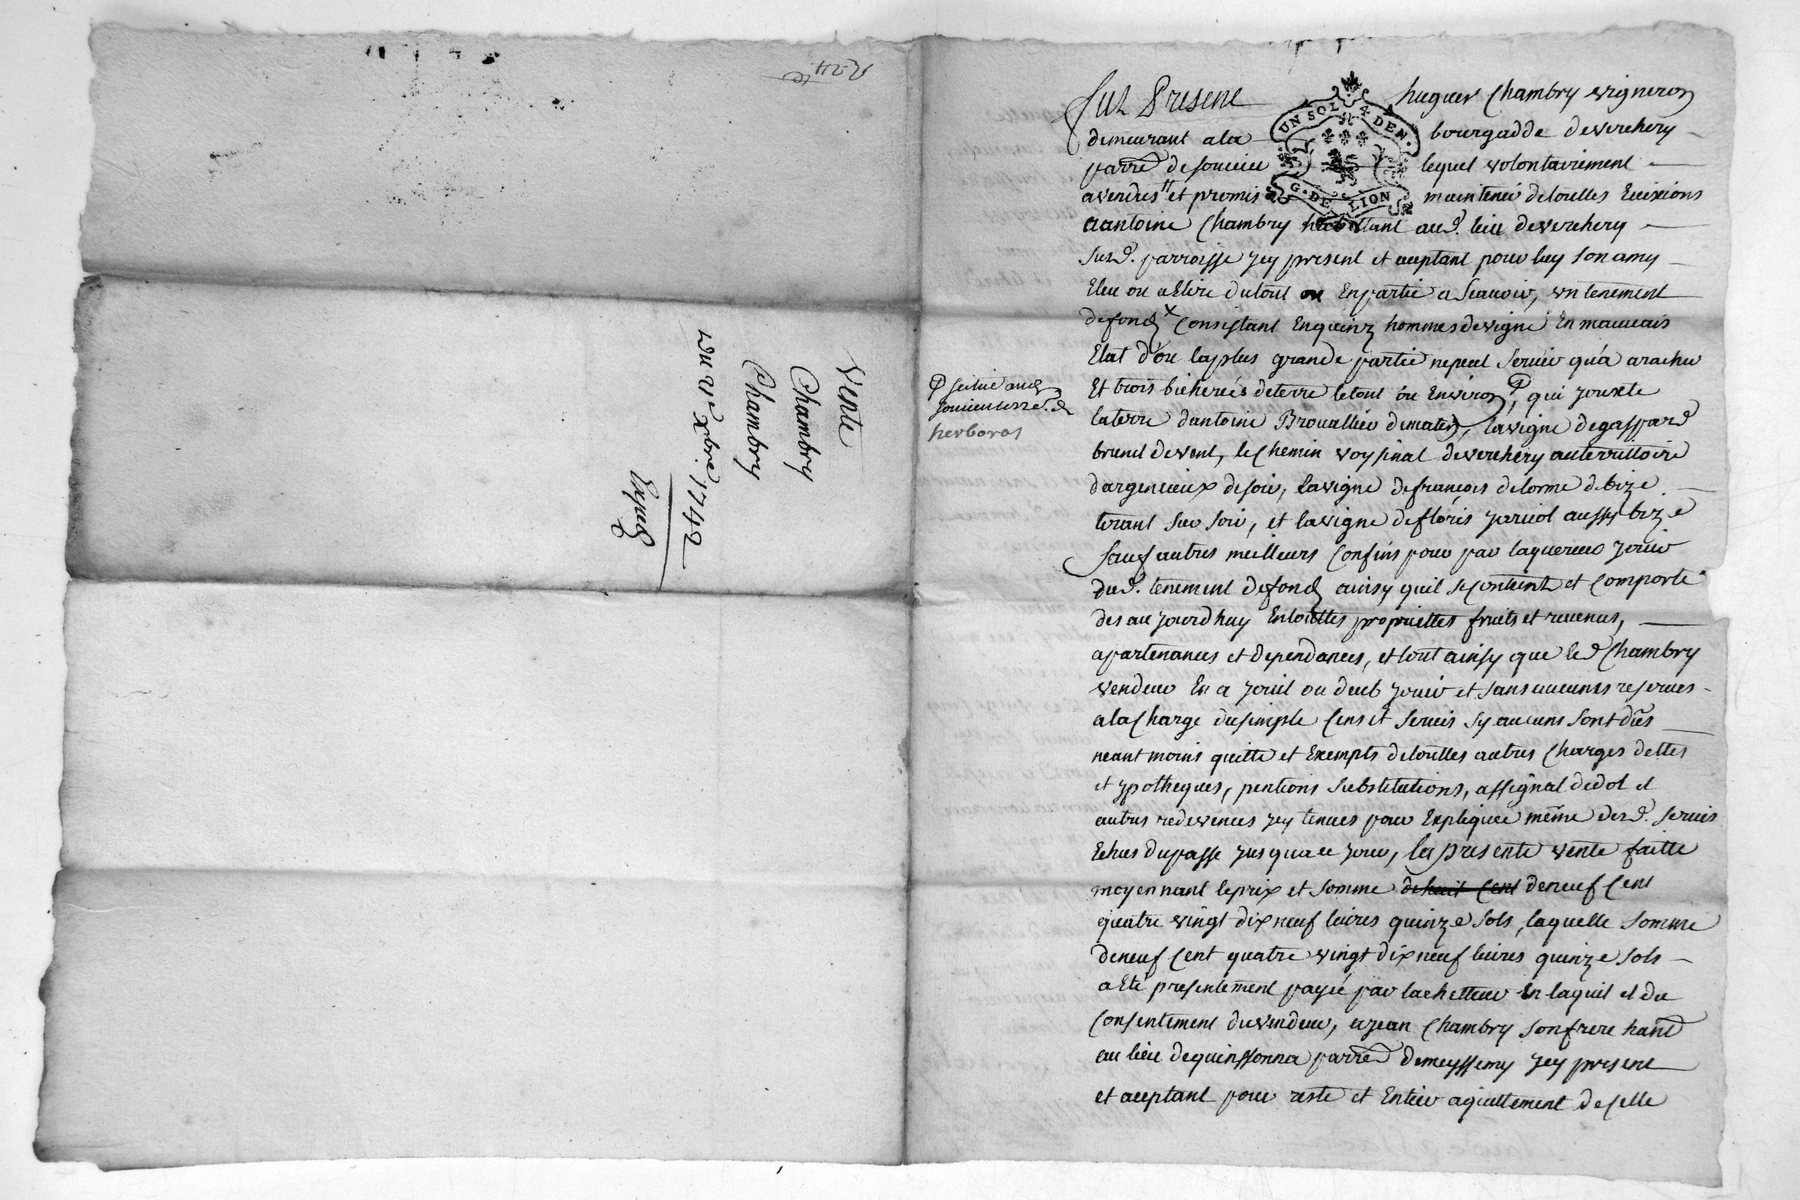 Vente
Chambry
Chambry
du 2e xbre 1742
Exped
UN SOL 4 DEN
G. DE LION
fut Present hugues Chambry vigneron
demeurant a la bourgadde deverchery
parre de soucieu lequel volontairement
a vendu et promis maintenir de touttes Evixions
a antoine Chambry habittant aud. lieu deverchery
susd. parroisse jcy present et aceptant pour luy son amy
Eleu ou a Elire du tout ou En partie a scavoir, un tenement
de fond x Consistant En quinz hommes de vigne En mauvais
Etat d'ou la plus grande partie ne peut servir qu'a aracher
Et trois bicherées de terre le tout ou Environ, qui jouxte
situé aud.
la terre d'antoine Brouallier de matin, la vigne de gaspard
brunel de vent, le Chemin voysinal deverchery au territtoire
d'argencieux de soir, la vigne de francois delorme de bize
tirant sur soir, et la vigne de floris jariot aussy bize
sauf autres meilleurs Confins pour par l'aquereur jouir
dud. tenement de fond ainsy quil se contient et comporte
des aujourdhuy En touttes propriettes fruits et revenus,
apartenances et dependances, et tout ainsy que led Chambry
vendeur En a jouit ou deub jouir et sans aucunes reserves
a la Charge du simple Cens et servis sy aucuns sont dus
neantmoins quitte et Exempts de touttes autres Charges dettes
et ypotheques, pentions substitutions, assignal de dot et
autres redevences jcy tenues pour Expliquée même desd. servis
Echus du passe jusqu'a ce jour, la presente vente faitte
moyennant le prix et somme de huit Cent de neuf Cent
quatre vingt dix neuf livres quinze sols, laquelle somme
de neuf Cent quatre vingt dix neuf livres quinze sols
a Eté presentement payée par lachetteur En laquit et du
Consentement du vendeur, a jean Chambry son frere hant
au lieu de quinssonna parre demeyssemy jcy present
et aceptant pour reste et Entier aquittement de Celle